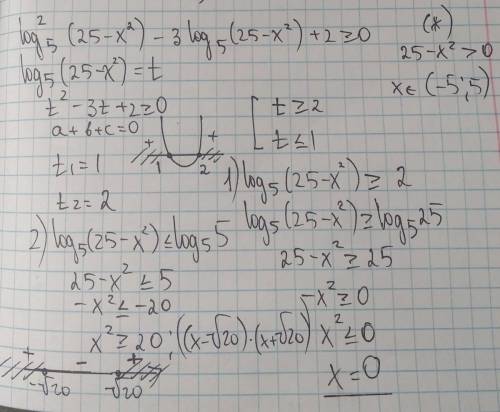 log²₅(25-x²) - 3log₅(25-x²)+2≥0
(*)
25-x²>0
x∈(-5;5)
log₅(25-x²)=t
t²-3t+2≥0
a+b+c=0
t₁=1
t₂=2
+ +
1 2
[ t≥2
t≤1
1) log₅(25-x²)≥2
log₅(25-x²)≥log₅25
25-x²≥25
-x²≥0
x²≤0
x=0
2) log₅(25-x²)≤log₅5
25-x²≤5
-x²≤-20
x²≥20; ((x-√20)·(x+√20)
+ - +
-√20 -√20